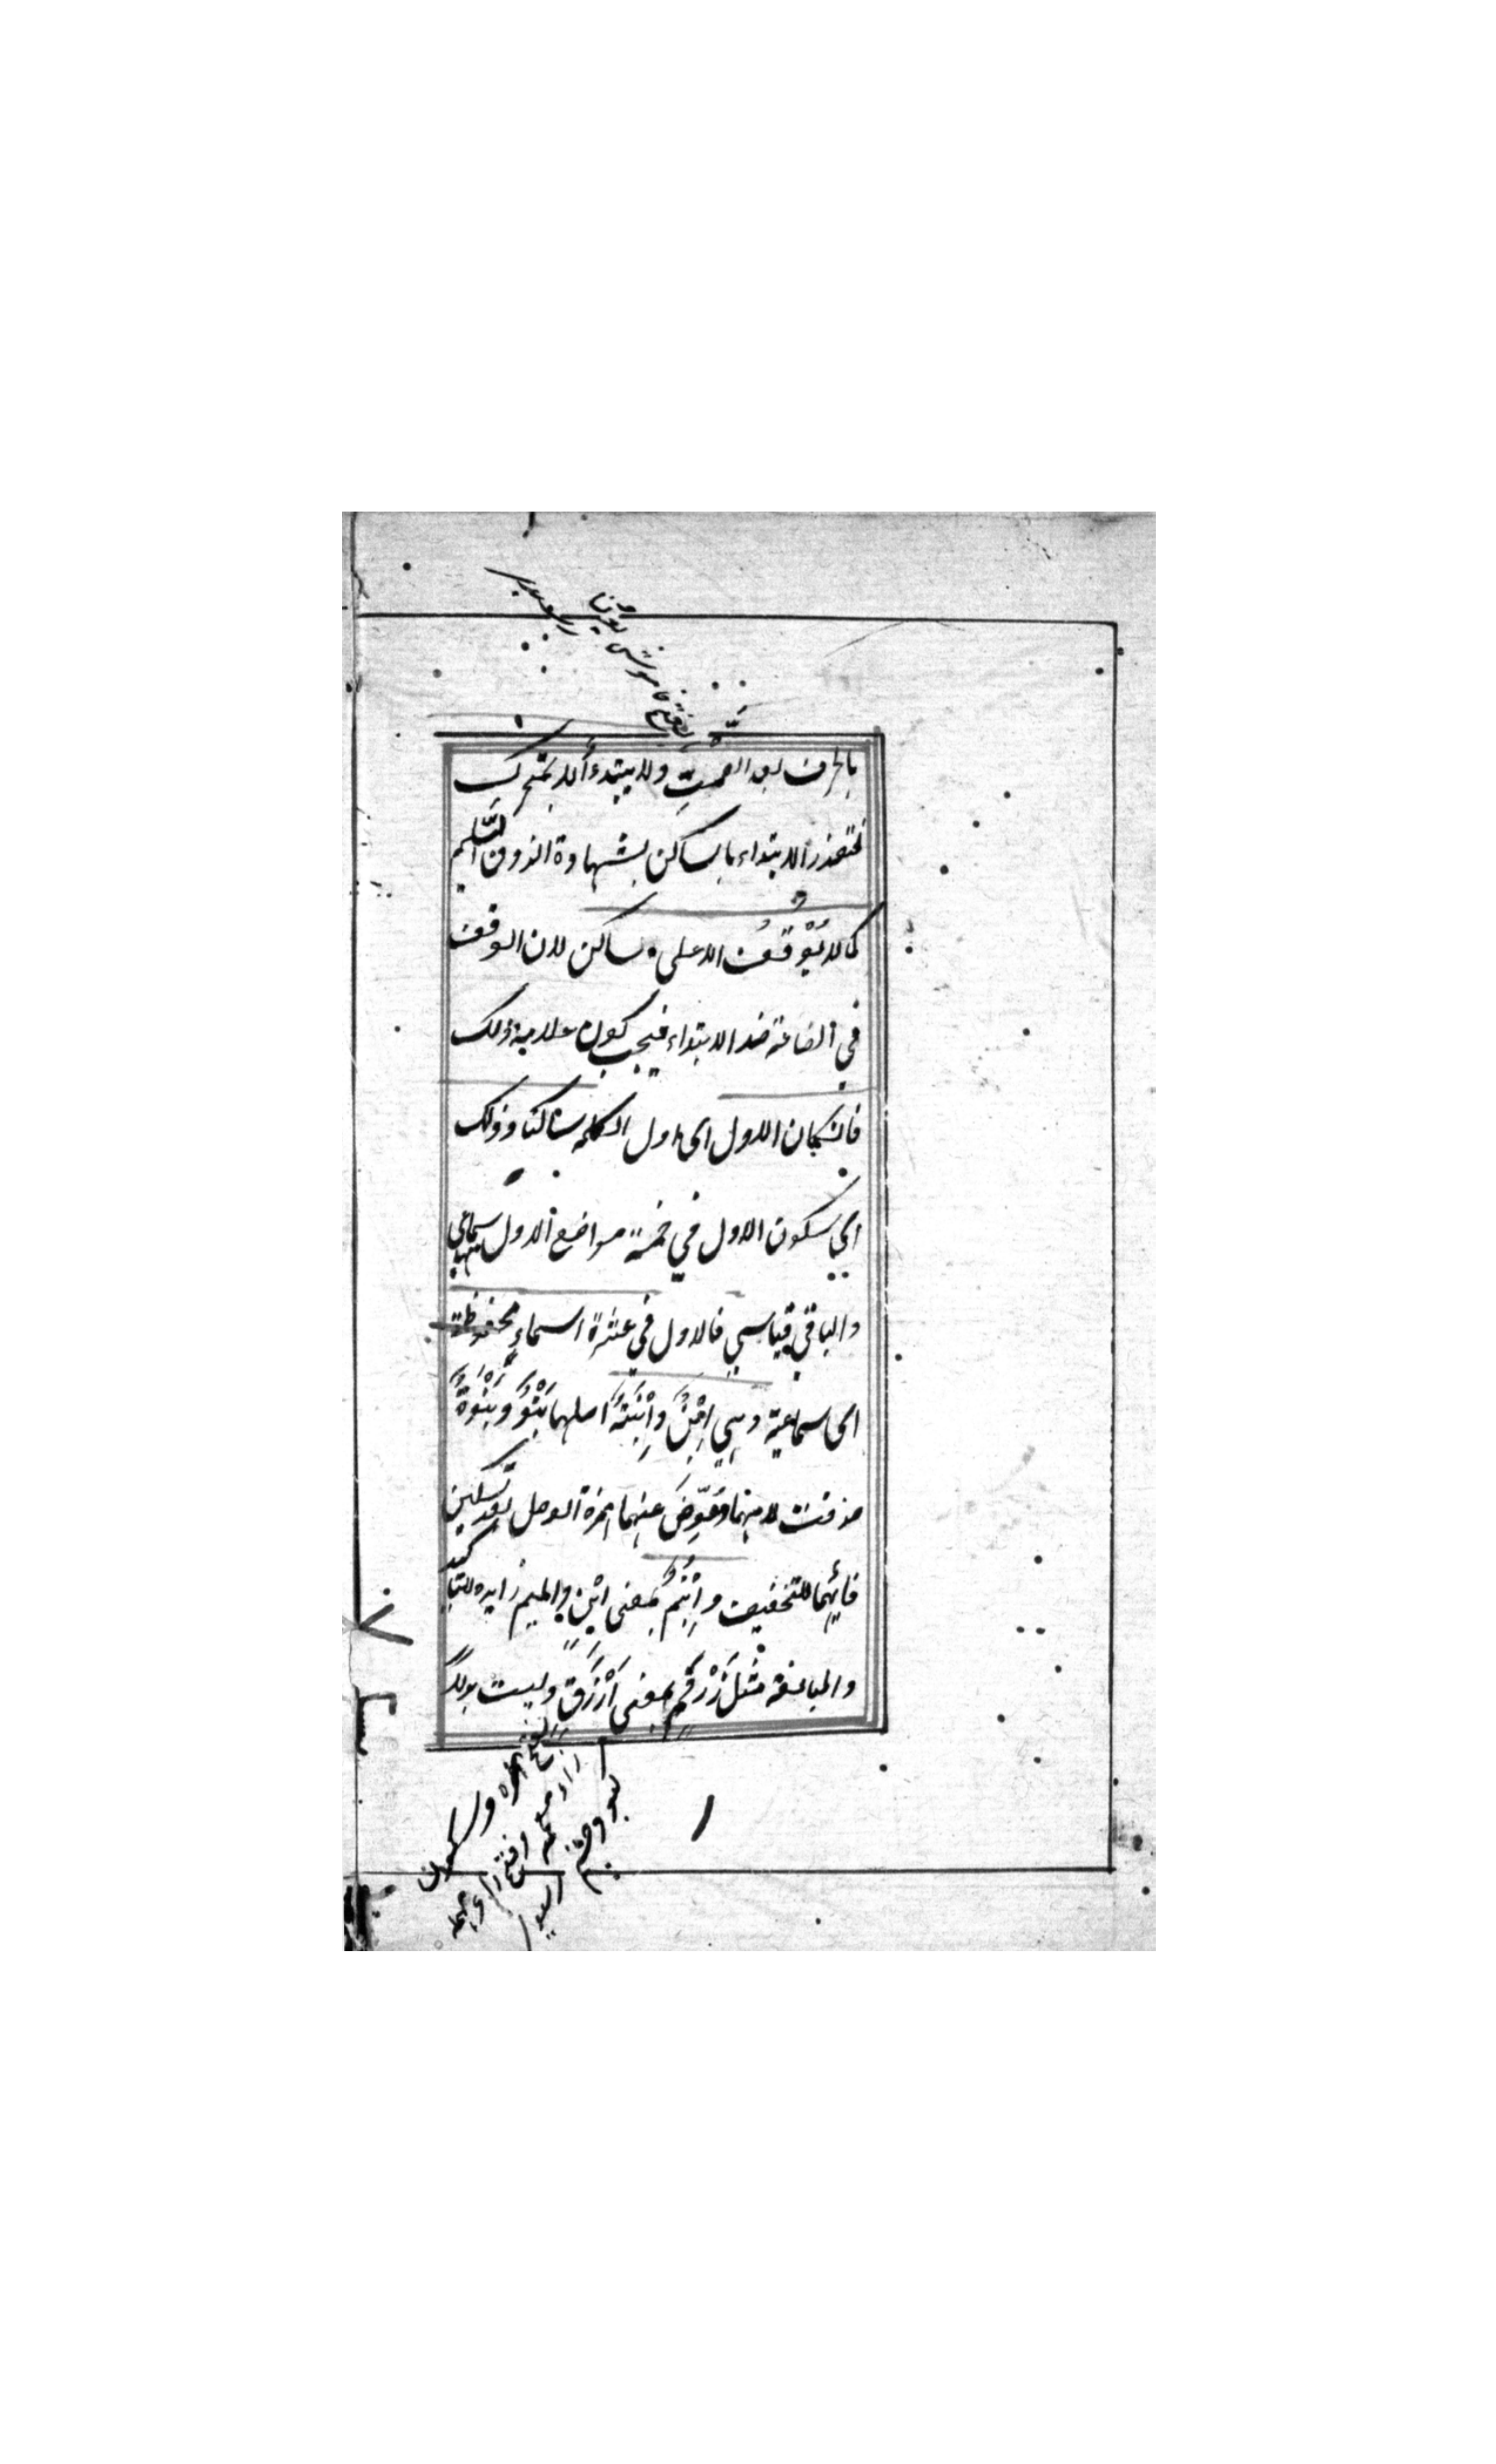 بالحرف بعد الصمتِ ولا يبتدءُ الا بمتحرك
لتعذر الابتداء بالساكن بشهادة الذوق السّليم
كما لا يُوْقَفُ الا على ساكن لان الوقف
في الصناعة ضد الابتداء فيجب كون علامة ذلك
فان كان الاول اى اول الكلمه ساكنا وذلك
اي سكون الاول في خمسة مواضع الاول منها سماعي
والباقي قياسي فالاول في عشرة اسماءٍ محفوظة
اى سماعية وهي اِبْنٌ وَاِبْنَةٌ اصلهما بَنَوٌ وَبَنَوَةٌ
حذفت لامهما وعُوِّضَ عنهما همزة الوصل بعد تسكين
فائهما للتخفيف واِبْنُمٌ بمعنى ابْنٍ والميم زايده للتاكيد
والمبالغة مثل زُرْقُمٍ بمعنى اَزْرَقٍ وليست بدلا
بفتح الهمزه وسكون
زاء معجمه وفتح راء مهمله